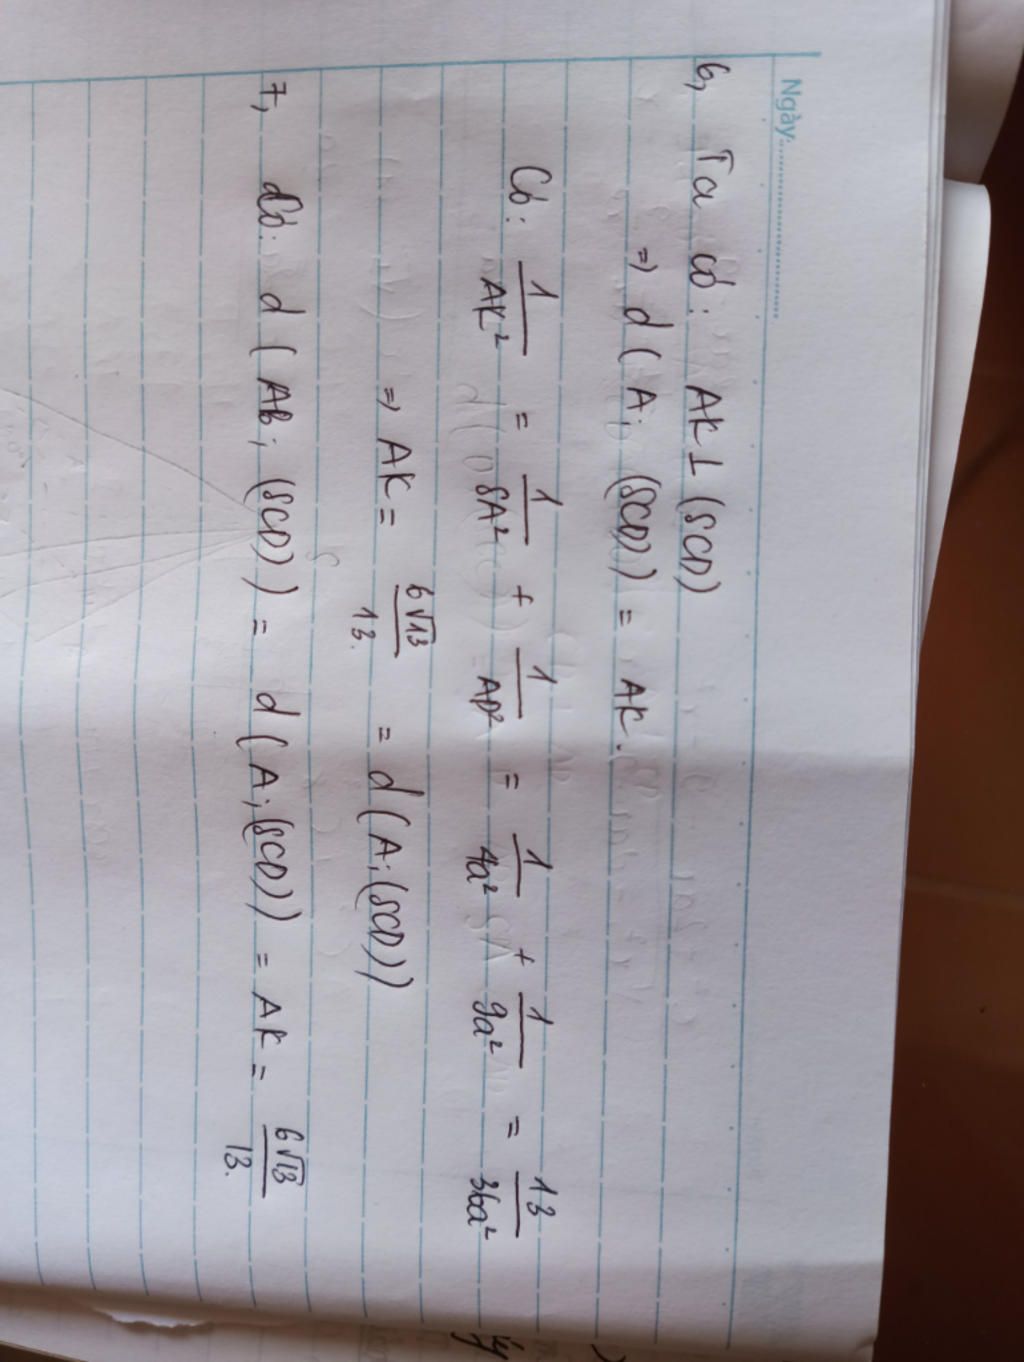 Ngày
6, Ta có: AK ⊥ (SCD)
=> d(A; (SCD)) = AK.
Có: 1/AK² = 1/SA² + 1/AD² = 1/4a² + 1/9a² = 13/36a²
=> AK = 6√13/13. = d(A; (SCD))
7, Có: d(AB; (SCD)) = d(A; (SCD)) = AK = 6√13/13.